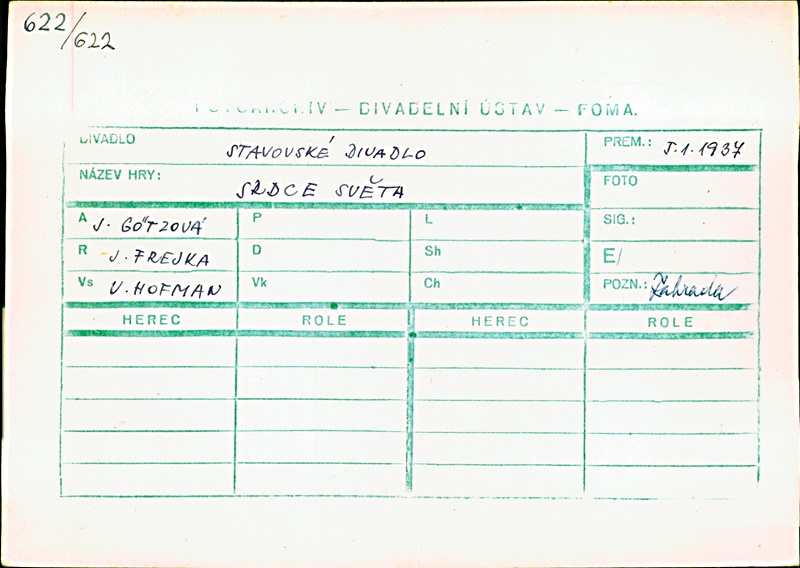 622/622
FOTOARCHIV — DIVADELNÍ ÚSTAV — FOMA.
DIVADLO STAVOVSKÉ DIVADLO PREM.: 5.1.1937
NÁZEV HRY: SRDCE SVĚTA FOTO
A J. GÖTZOVÁ P L SIG.:
R J. FREJKA D Sh E/
Vs V. HOFMAN Vk Ch POZN.: Zahrada
HEREC ROLE HEREC ROLE